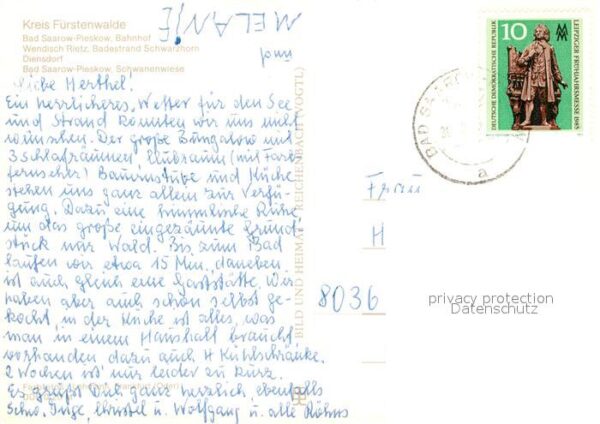 Kreis Fürstenwalde
Bad Saarow-Pieskow, Bahnhof
Wendisch Rietz, Badestrand Schwarzhorn
Diensdorf
Bad Saarow-Pieskow, Schwanenwiese
MELANIE
und
Liebe Herthel!
Ein herrlicheres Wetter für den See
und Strand könnten wir uns nicht
wünschen. Der große Bungalow mit
3 Schlafräumen, (mit Farb
fernseher) Bauernstube und Küche
stehen uns ganz allein zur Verfü-
gung. Dazu eine himmlische Ruhe,
um das große eingezäunte Grund-
stück nur Wald. Bis zum Bad
laufen wir etwa 15 Min, daneben
ist auch gleich eine Gaststätte. Wir
haben aber auch schon selbst ge-
kocht, in der Küche ist alles, was
man in einem Haushalt braucht
vorhanden dazu auch 4 Kühlschränke.
2 Wochen ist nur leider zu kurz.
Es grüßt Dich ganz herzlich, ebenfalls
Schw. Inge, Christel u. Wolfgang u. alle Röhns
BILD UND HEIMAT REICHENBACH (VOGTL)
10
DEUTSCHE DEMOKRATISCHE REPUBLIK
LEIPZIGER FRÜHJAHRSMESSE 1985
BAD SAAROW
a
Frau
H
8036
privacy protection
Datenschutz